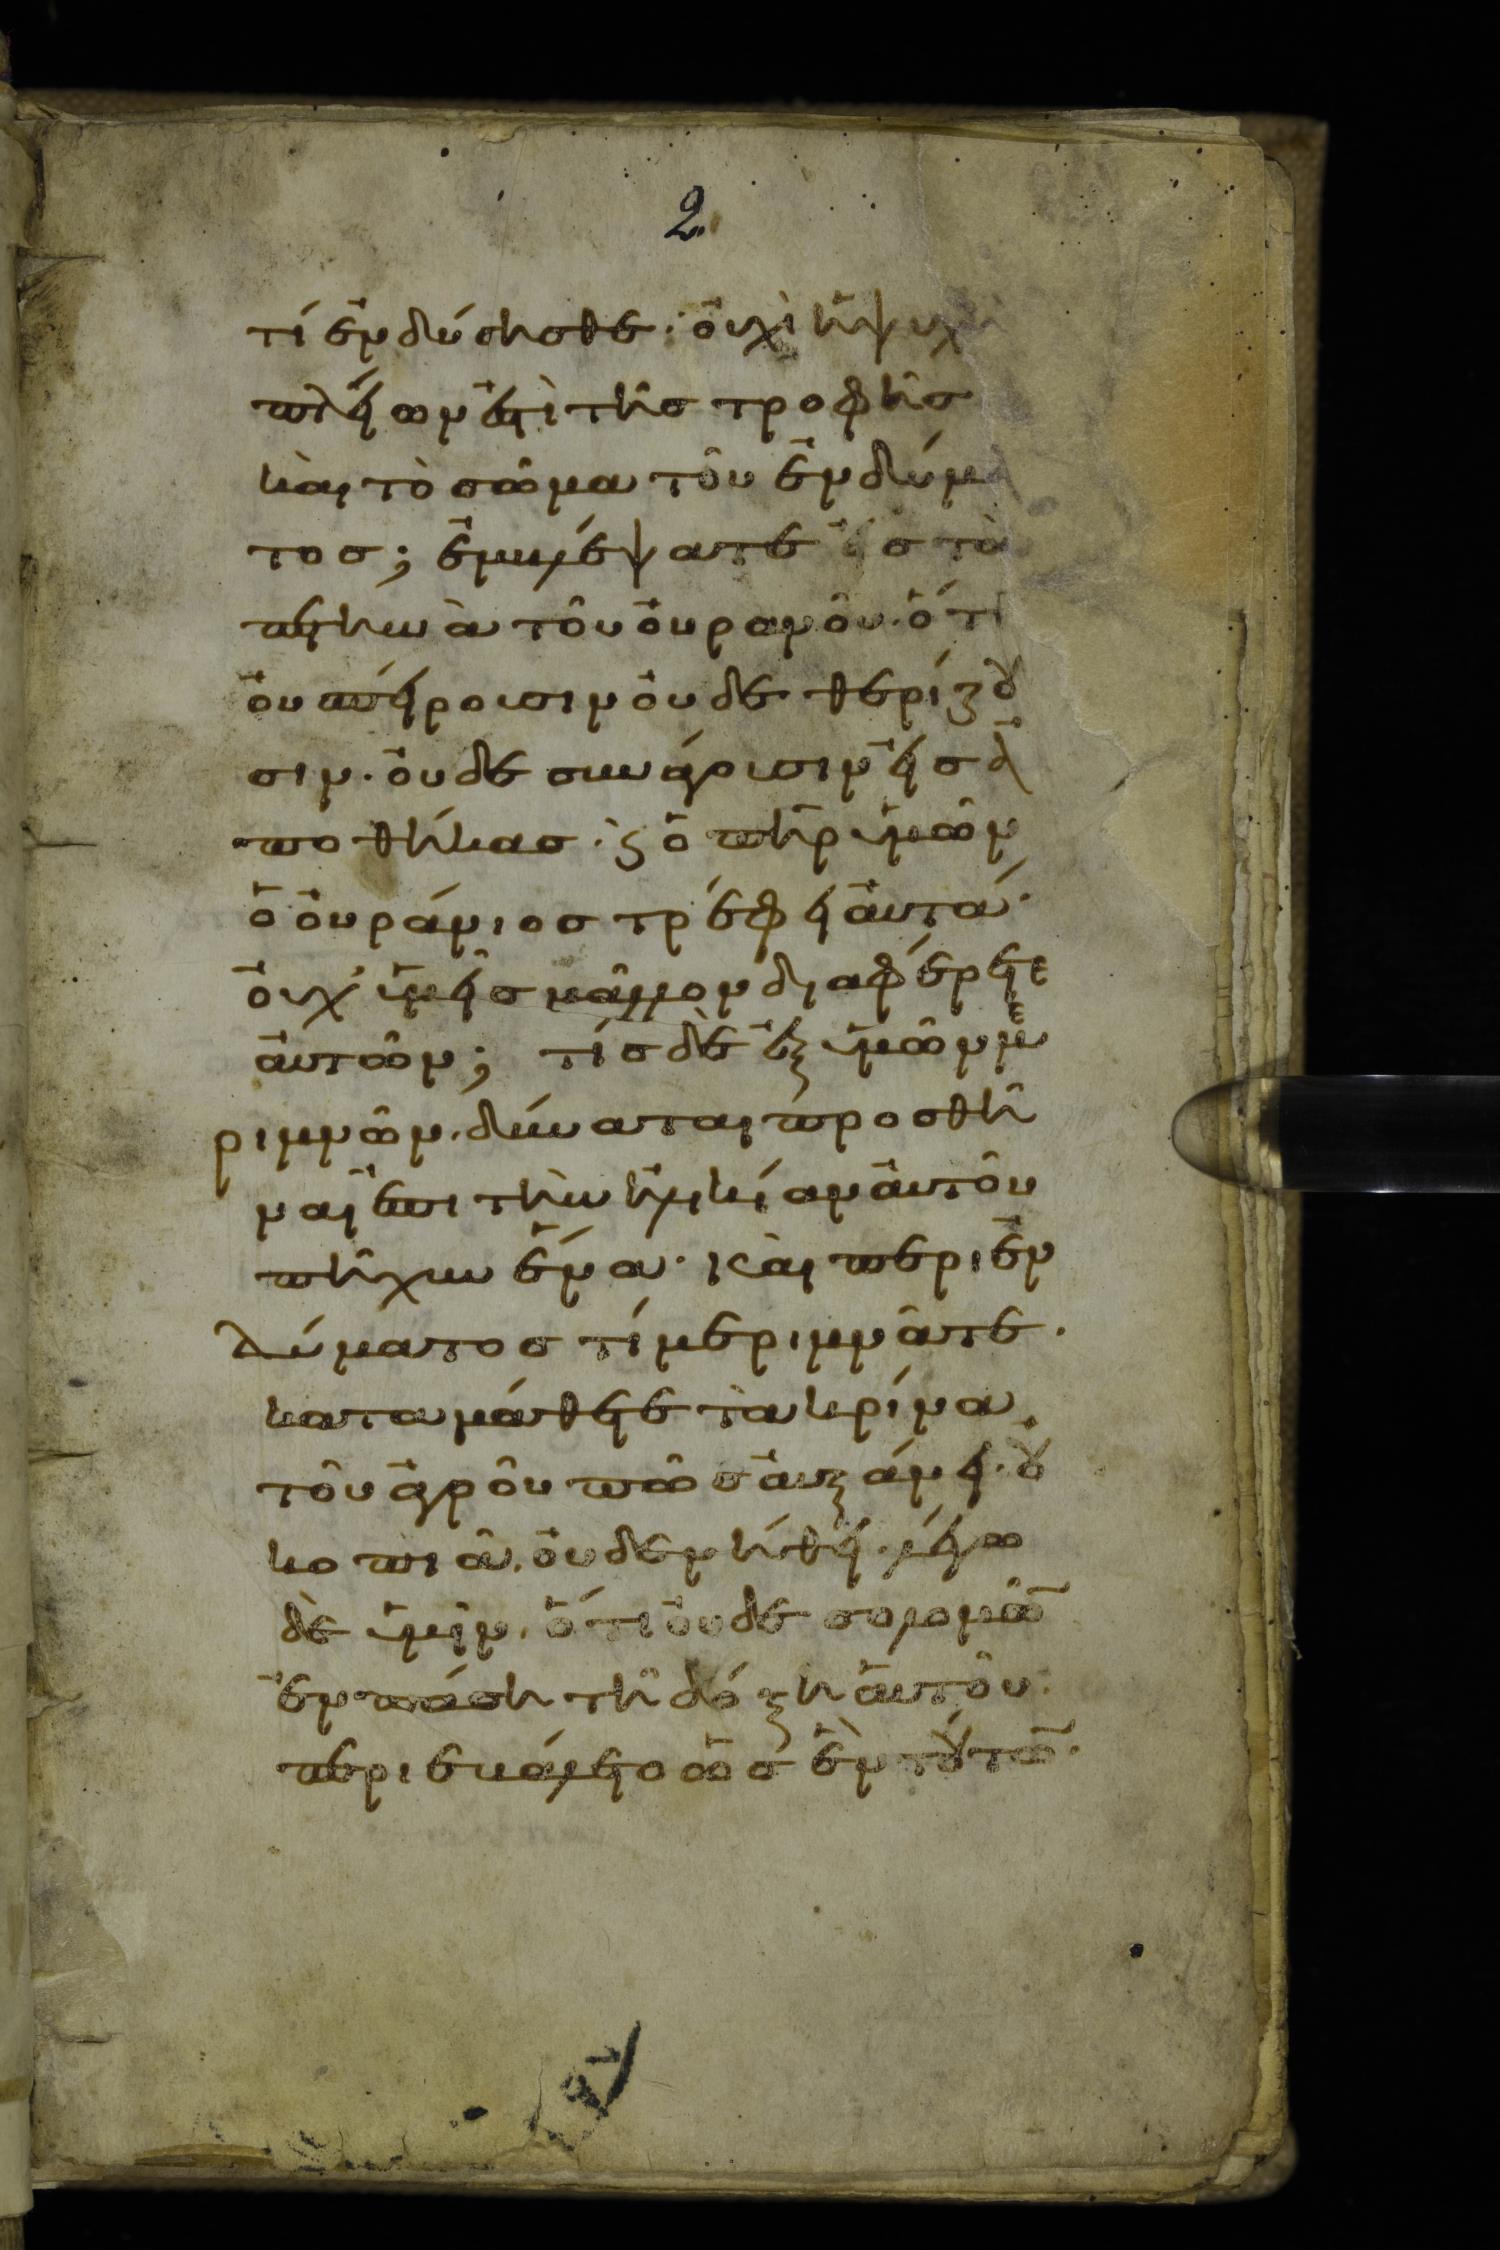 2
τί ἐνδύσησθε· οὐχὶ ἡ ψυχὴ
πλείων ἐστὶ τῆς τροφῆς
καὶ τὸ σῶμα τοῦ ἐνδύμα
τος; ἐμβλέψατε εἰς τὰ
πετηνὰ τοῦ οὐρανοῦ· ὅτι
οὐ σπείρουσιν οὐδὲ θερίζου
σιν· οὐδὲ συνάγουσιν εἰς ἀ
ποθήκας· ϗ ὁ πηρ ὑμῶν
ὁ οὐράνιος τρέφει αὐτά·
οὐχ' ὑμεῖς μᾶλλον διαφέρετε
αὐτῶν; τίς δὲ ἐξ ὑμῶν με
ριμνῶν· δύναται προσθῆ
ναι ἐπι τὴν ἡλικίαν αὐτοῦ
πῆχυν ἕνα· καὶ περι ἐν
δύματος τί μεριμνᾶτε·
καταμάθετε τὰ κρίνα
τοῦ ἀγροῦ πῶς αὐξάνει· οὐ
κοπιᾶ· οὐδε νήθει· λέγω
δὲ ὑμῖν· ὅτι οὐδε σολομῶν
ἐν πάση τῆ δόξη αὐτοῦ·
περιεβάλετο ὡς ἓν τούτων·